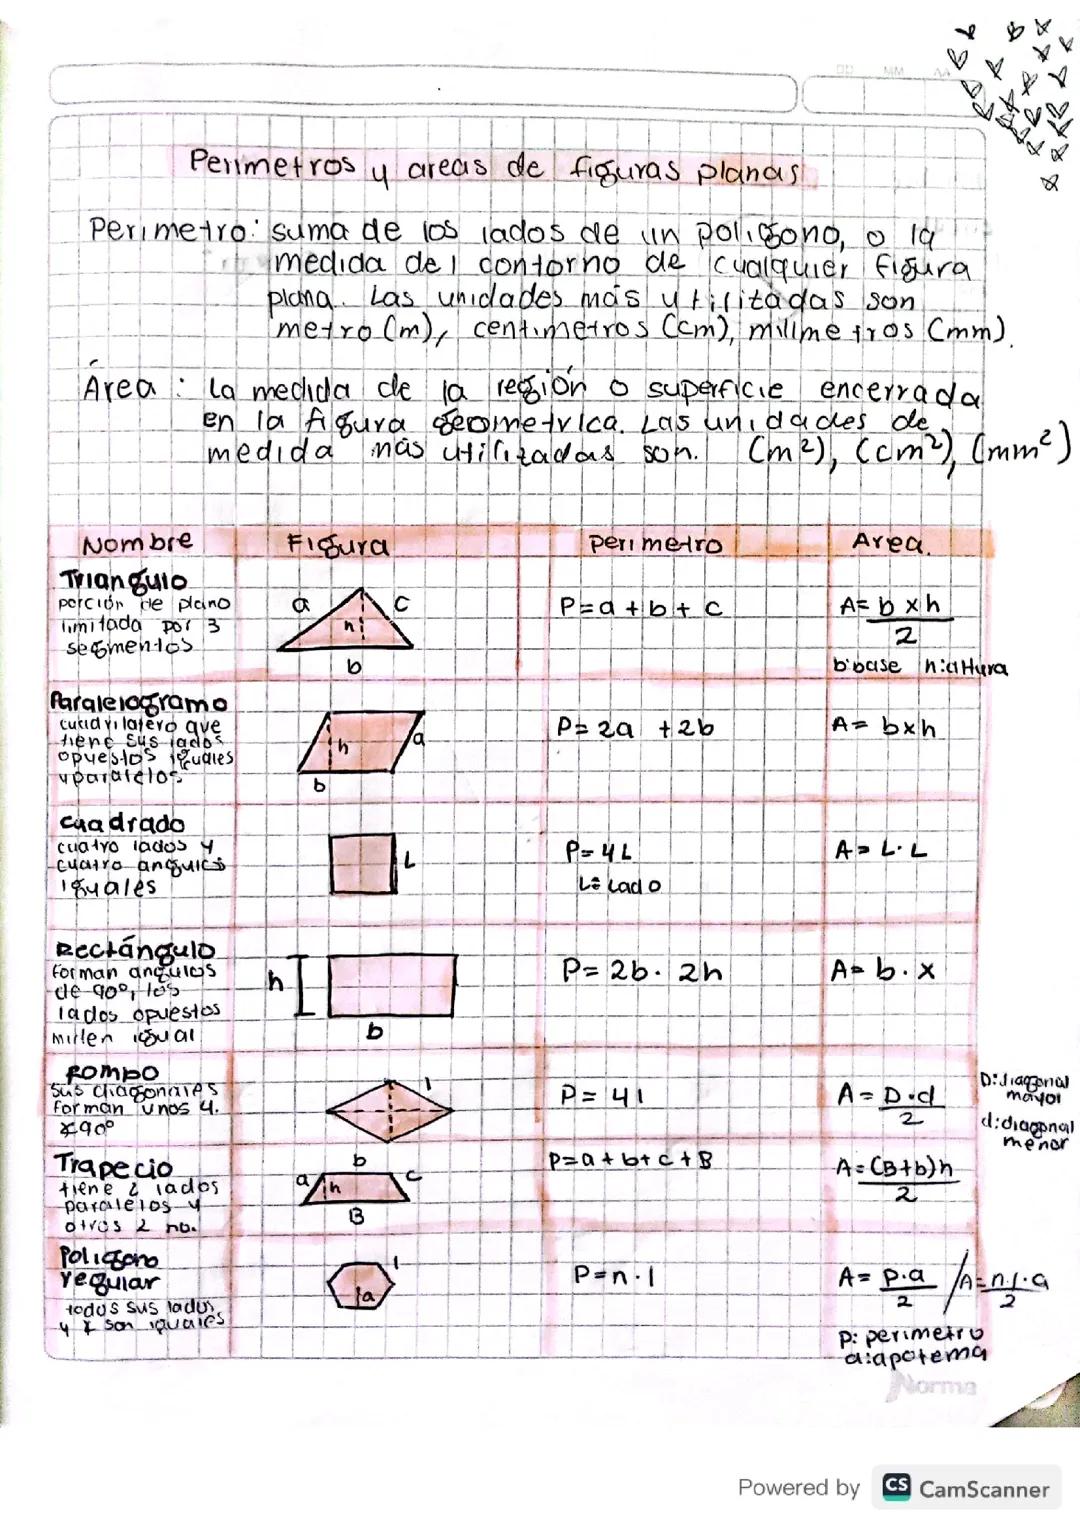 DD MM AA
Perimetros y areas de figuras planas
Perimetro: suma de los lados de un poligono, o la
medida del contorno de cualquier figura
plana. Las unidades más utilitadas son
metro (m), centimetros (cm), milimetros (mm).
Área : La medida de la región o superficie encerrada
en la figura geometrica. Las unidades de
medida más utilizadas son. (m²), (cm²), (mm²)
Nombre Figura Perimetro Area.
Triangulo
porción de plano
limitada por 3
segmentos
a c
h
b
P= a + b + c
A= b x h
2
b:base h:altura
Paralelogramo
cuadrilatero que
tiene sus lados
opuestos iguales
y paralelos
h a
b
P= 2a + 2b
A= bxh
Cuadrado
cuatro lados y
cuatro angulos
iguales
L
P= 4L
L= Lado
A= L. L
Rectángulo
forman angulos
de 90°, los
lados opuestos
miden igual
h
b
P= 2b. 2h
A= b . x
Rombo
Sus diagonales
forman unos 4.
∡90°
l
P= 4l
A= D.d
2
D:diagonal
mayor
d:diagonal
menor
Trapecio
tiene 2 lados
paralelos y
otros 2 no.
b
a h c
B
P=a+b+c+B
A=(B+b)h
2
Poligono
regular
todos sus lados
y ∡ son iguales
l
a
P=n.l
A= p.a / A=n.l.a
2 2
p: perimetro
a:apotema
Norma
Powered by CS CamScanner